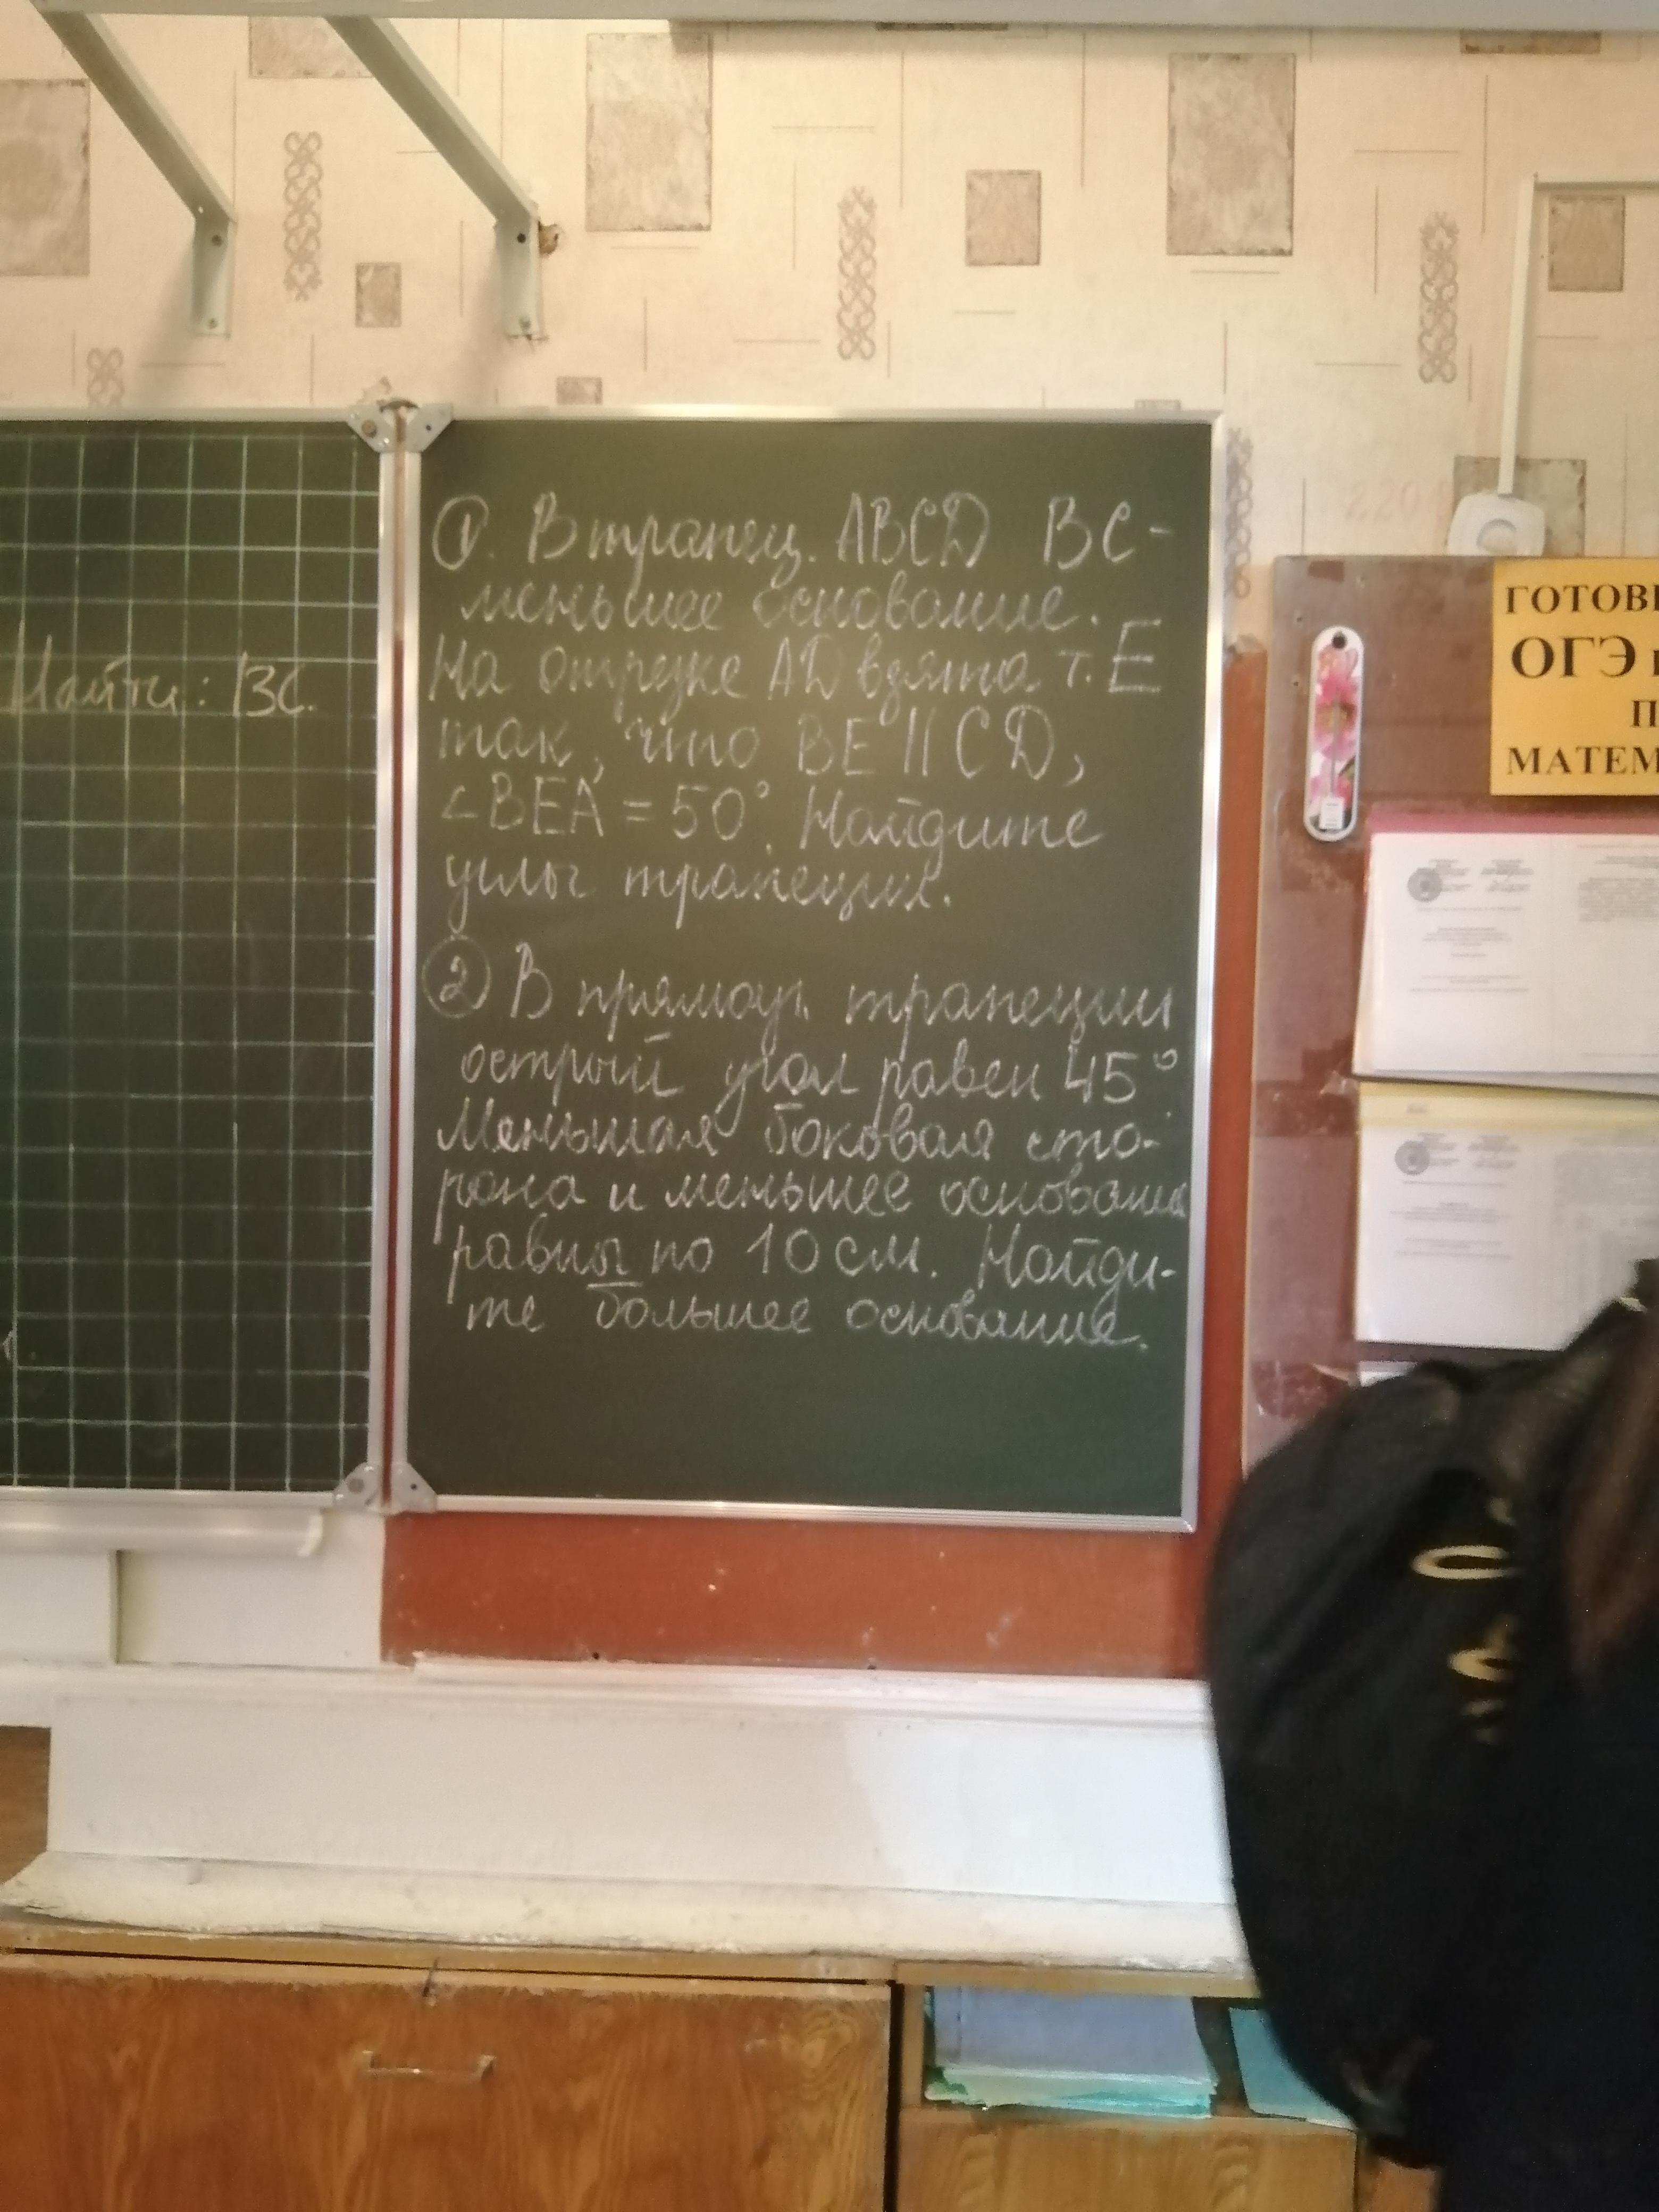 Найти: BC.
①. В трапец. ABCD BC -
меньшее основание.
На отрезке AD взята т. E
так, что BE || CD,
∠BEA = 50°. Найдите
углы трапеции.
② В прямоуг. трапеции
острый угол равен 45°.
Меньшая боковая сто-
рона и меньшее основание
равны по 10 см. Найди-
те большее основание.
220
ГОТОВ
ОГЭ
П
МАТЕМ